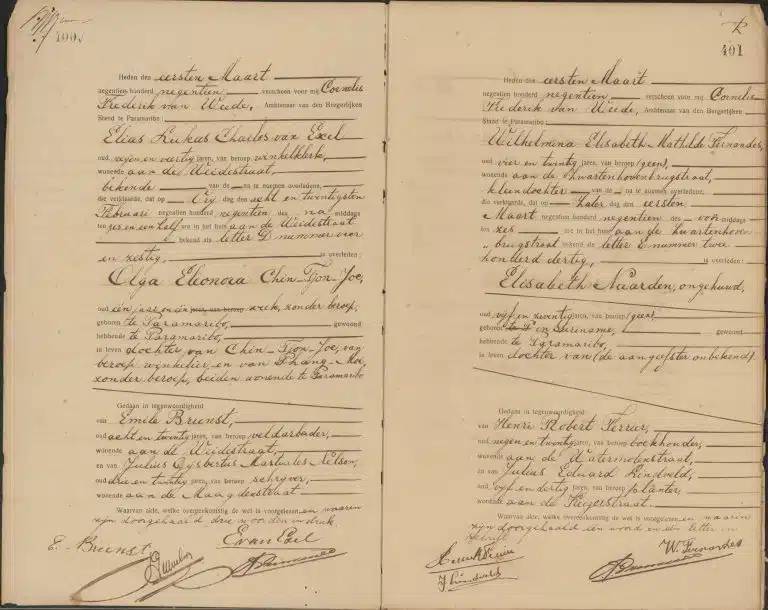 400
Heden den eersten Maart
negentien honderd negentien verscheen voor mij Cornelis
Frederik van Weede, Ambtenaar van den Burgerlijken
Stand te Paramaribo:
Elias Lukas Charles van Exel
oud zijen en veertig jaren, van beroep winkelklerk,
wonende aan de Weidestraat,
bekende van de na te noemen overledene,
die verklaarde, dat op Vrij dag den acht en twintigsten
Februari negentien honderd negentien des na middags
te zes en een half ure in het huis aan de Weidestraat
bekend als letter D nummer vier
en zestig, is overleden:
Olga Eleonora Chin-Tjon-Joe,
oud één jaar en één jaren, van beroep week, zonder beroep,
geboren te Paramaribo, gewoond
hebbende te Paramaribo,
in leven dochter van Chin-Tjon-Joe, van
beroep winkelier en van Phang-Moi,
zonder beroep, beiden wonende te Paramaribo
Gedaan in tegenwoordigheid
van Emile Brunst,
oud acht en twintig jaren, van beroep veldarbeider,
wonende aan de Weidestraat,
en van Julius Gijsbertus Martinles Nelson,
oud drie en twintig jaren, van beroep schrijver,
wonende aan de Maagdenstraat
Waarvan akte, welke overeenkomstig de wet is voorgelezen en waarin
zijn doorgehaald drie woorden in druk
E. Brunst, E van Exel
401
Heden den eersten Maart
negentien honderd negentien verscheen voor mij Cornelis
Frederik van Weede, Ambtenaar van den Burgerlijken
Stand te Paramaribo:
Wilhelmina Elisabeth Mathilde Fernandes,
oud vier en twintig jaren, van beroep (geen),
wonende aan de Zwartenhovenbrugstraat,
kleindochter van de na te noemen overledene,
die verklaarde, dat op Zater dag den eersten
Maart negentien honderd negentien des voor middags
te zes ure in het huis aan de Zwartenhoven
„ brugstraat bekend als letter E nummer twee
honderd dertig, is overleden:
Elisabeth Naarden, ongehuwd,
oud vijf en zeventig jaren, van beroep (geen)
geboren te P in Suriname, gewoond
hebbende te Paramaribo,
in leven dochter van (de aangeefster onbekend).
Gedaan in tegenwoordigheid
van Henri Robert Ferrier,
oud negen en twintig jaren, van beroep boekhouder,
wonende aan de Watermolenstraat,
en van Julius Eduard Lindveld,
oud vijf en dertig jaren, van beroep planter,
wonende aan de Keizerstraat.
Waarvan akte, welke overeenkomstig de wet is voorgelezen en waarin
zijn doorgehaald een woord en één letter in
schrift
W. Fernandes
J Lindveld